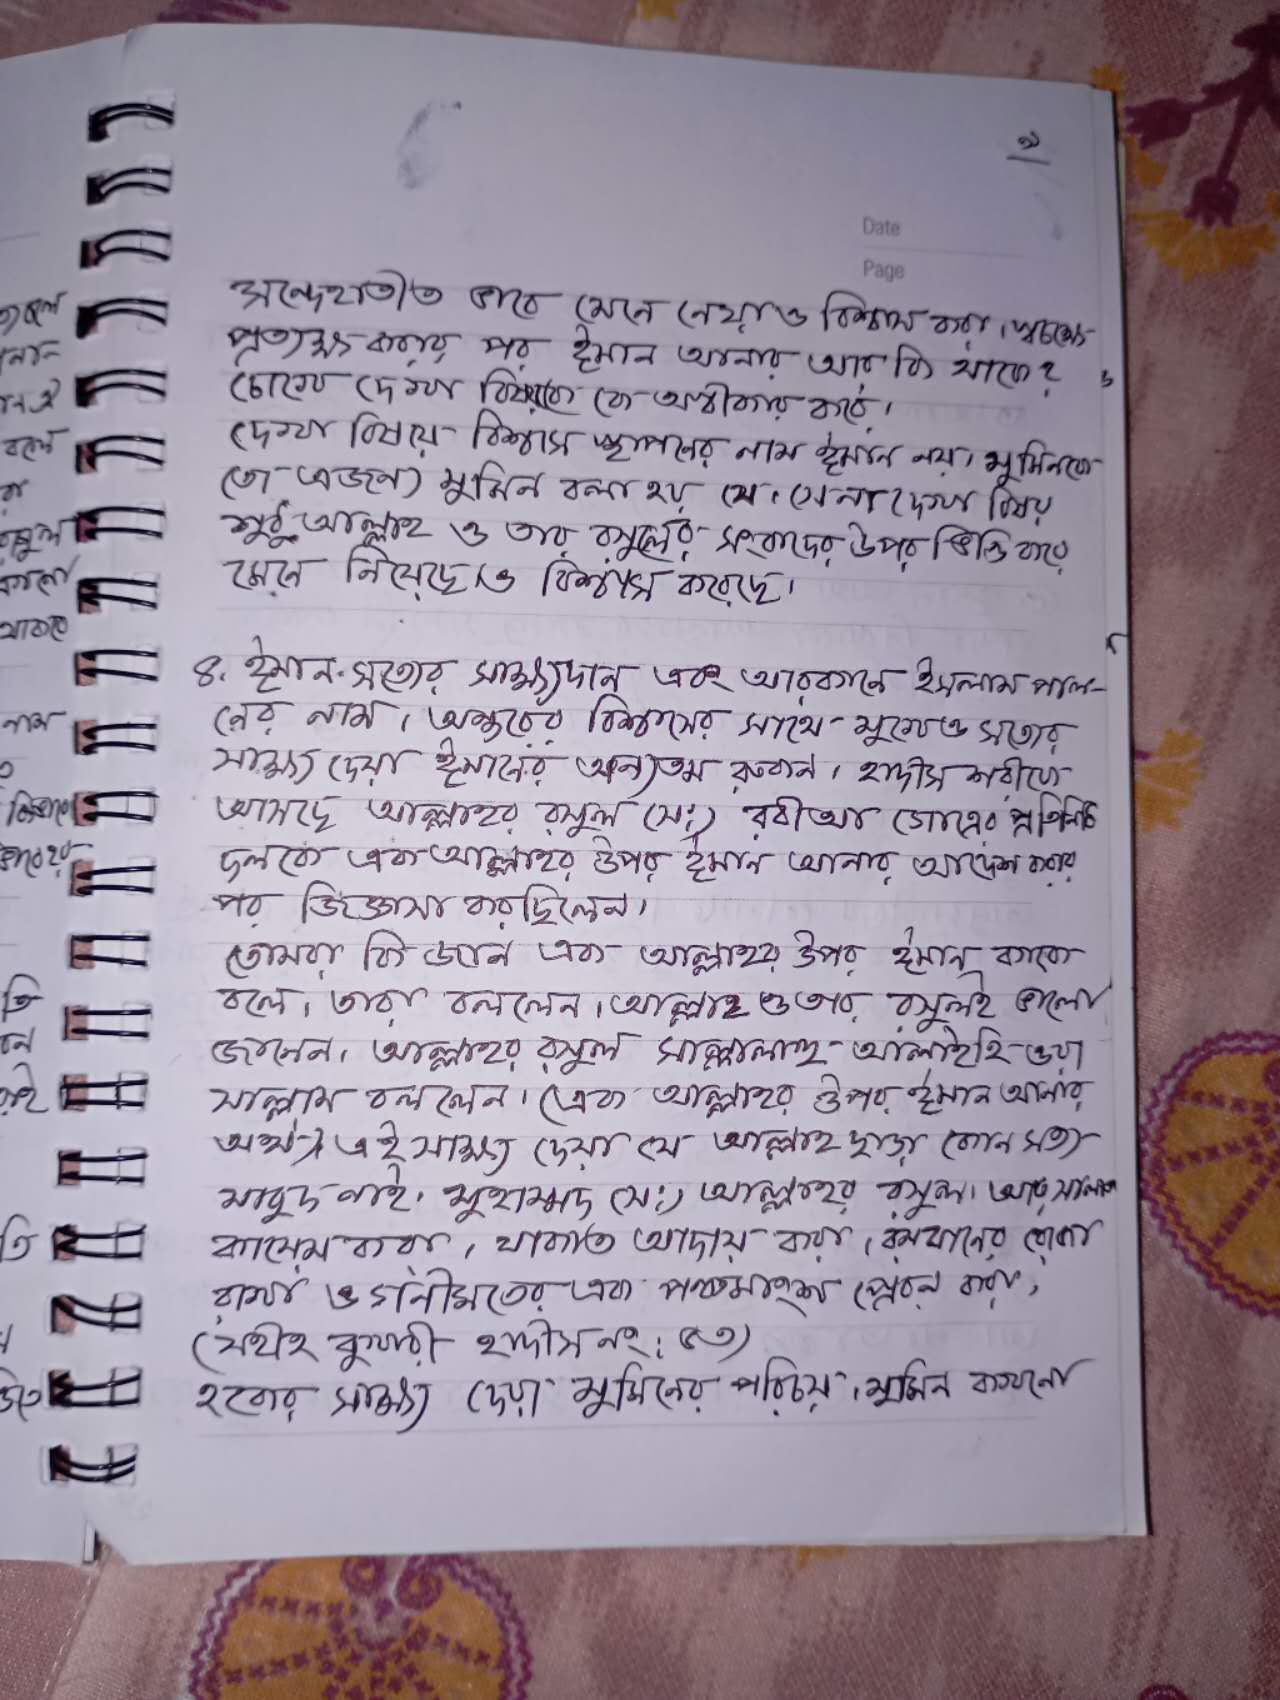 ৯
Date
Page
সন্দেহাতীত ভাবে মেনে নেয়াও বিশ্বাস করা। স্বচক্ষে
প্রত্যক্ষ করার পর ঈমান আনার আর কি থাকে?
চোখে দেখা বিষয়কে কে অস্বীকার করে।
দেখা বিষয়ে বিশ্বাস স্থাপনের নাম ঈমান নয়। মুমিনকে
তো এজন্য মুমিন বলা হয় যে। সে না দেখা বিষয়
শুধু আল্লাহ ও তার রসুলের সংবাদের উপর ভিত্তি করে
মেনে নিয়েছে ও বিশ্বাস করেছে।
৪. ঈমান সত্যের সাক্ষ্যদান এবং আরকানে ইসলাম পাল-
নের নাম। অন্তরের বিশ্বাসের সাথে মুখেও সত্যের
সাক্ষ্য দেয়া ঈমানের অন্যতম রুকন। হাদীস শরীফে
আসছে আল্লাহর রসুল (স:) রবীআ গোত্রের প্রতিনিধি
দলকে এক আল্লাহর উপর ঈমান আনার আদেশ করার
পর জিজ্ঞাসা করছিলেন।
তোমরা কি জান এক আল্লাহর উপর ঈমান কাকে
বলে। তারা বললেন। আল্লাহ ও তার রসুলই ভালো
জানেন। আল্লাহর রসুল সাল্লালাহু আলাইহি ওয়া
সাল্লাম বললেন। (এক আল্লাহর উপর ঈমান আনার
অর্থ এই সাক্ষ্য দেয়া যে আল্লাহ ছাড়া কোন সত্য
মাবুদ নাই। মুহাম্মদ (স:) আল্লাহর রসুল। আর সালাত
কায়েম করা, যাকাত আদায় করা, রমযানের রোজা
রাখা ও গনীমতের এক পঞ্চমাংশ প্রেরন করা,
(সহীহ বুখারী হাদীস নং: ৫৩)
হকের সাক্ষ্য দেয়া মুমিনের পরিচয়। মুমিন কখনো